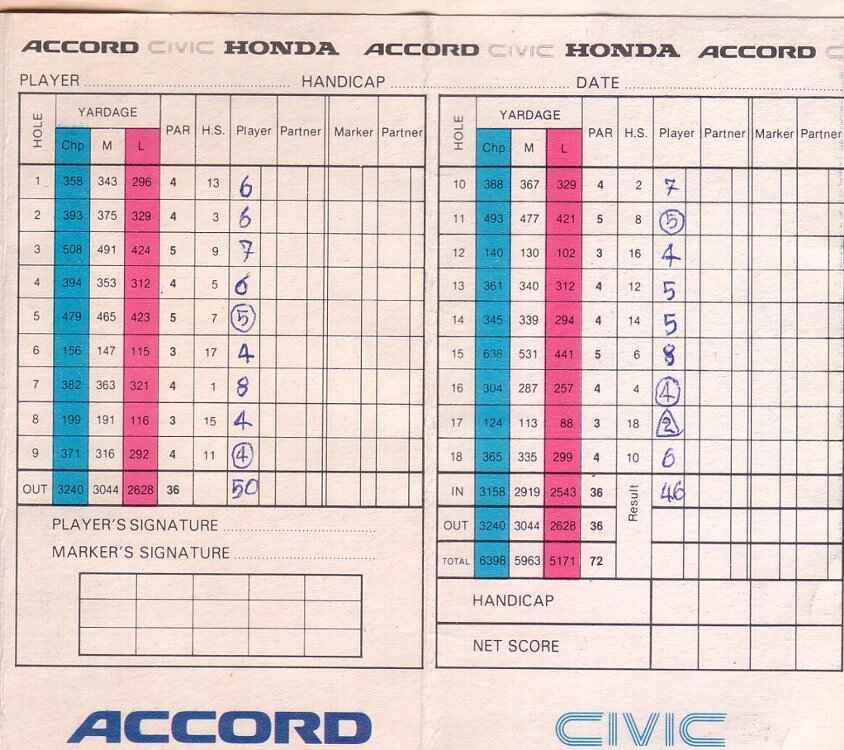 ACCORD CIVIC HONDA ACCORD CIVIC HONDA ACCORD C
PLAYER HANDICAP DATE
HOLE YARDAGE PAR H.S. Player Partner Marker Partner
Chp M L
1 358 343 296 4 13 6
2 393 375 329 4 3 6
3 508 491 424 5 9 7
4 394 353 312 4 5 6
5 479 465 423 5 7 5
6 156 147 115 3 17 4
7 382 363 321 4 1 8
8 199 191 116 3 15 4
9 371 316 292 4 11 4
OUT 3240 3044 2628 36 50
PLAYER'S SIGNATURE
MARKER'S SIGNATURE
ACCORD
HOLE YARDAGE PAR H.S. Player Partner Marker Partner
Chp M L
10 388 367 329 4 2 7
11 493 477 421 5 8 5
12 140 130 102 3 16 4
13 361 340 312 4 12 5
14 345 339 294 4 14 5
15 638 531 441 5 6 8
16 304 287 257 4 4 4
17 124 113 88 3 18 2
18 365 335 299 4 10 6
IN 3158 2919 2543 36 Result 46
OUT 3240 3044 2628 36
TOTAL 6398 5963 5171 72
HANDICAP
NET SCORE
CIVIC